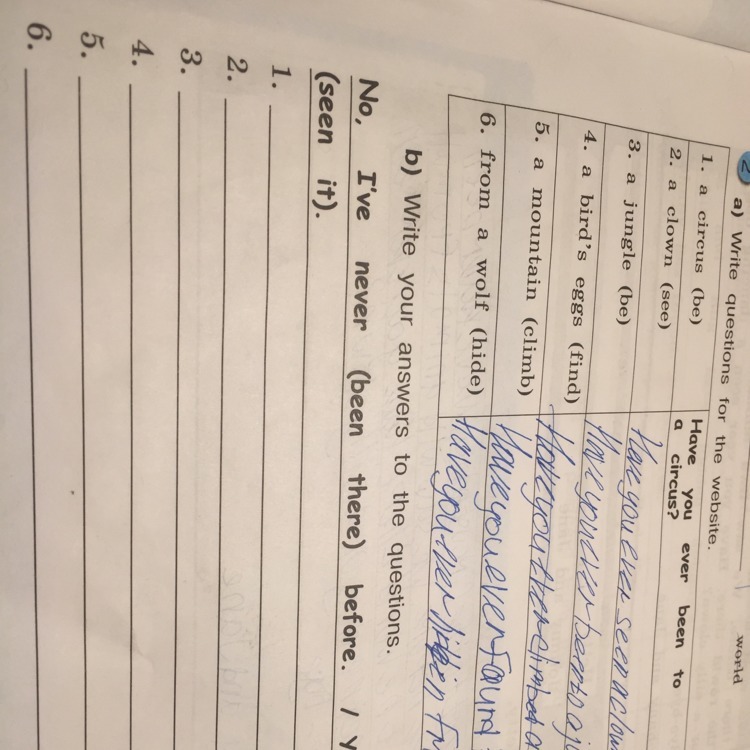 world
2
a) Write questions for the website.
1. a circus (be) Have you ever been to
a circus?
2. a clown (see)
Have you ever seen a clow
3. a jungle (be)
Have you ever been to a j
4. a bird's eggs (find)
Have you climbed a
5. a mountain (climb)
Have you ever found
6. from a wolf (hide)
Have you ever fr
b) Write your answers to the questions.
No, I've never (been there) before. / Y
(seen it).
1.
2.
3.
4.
5.
6.